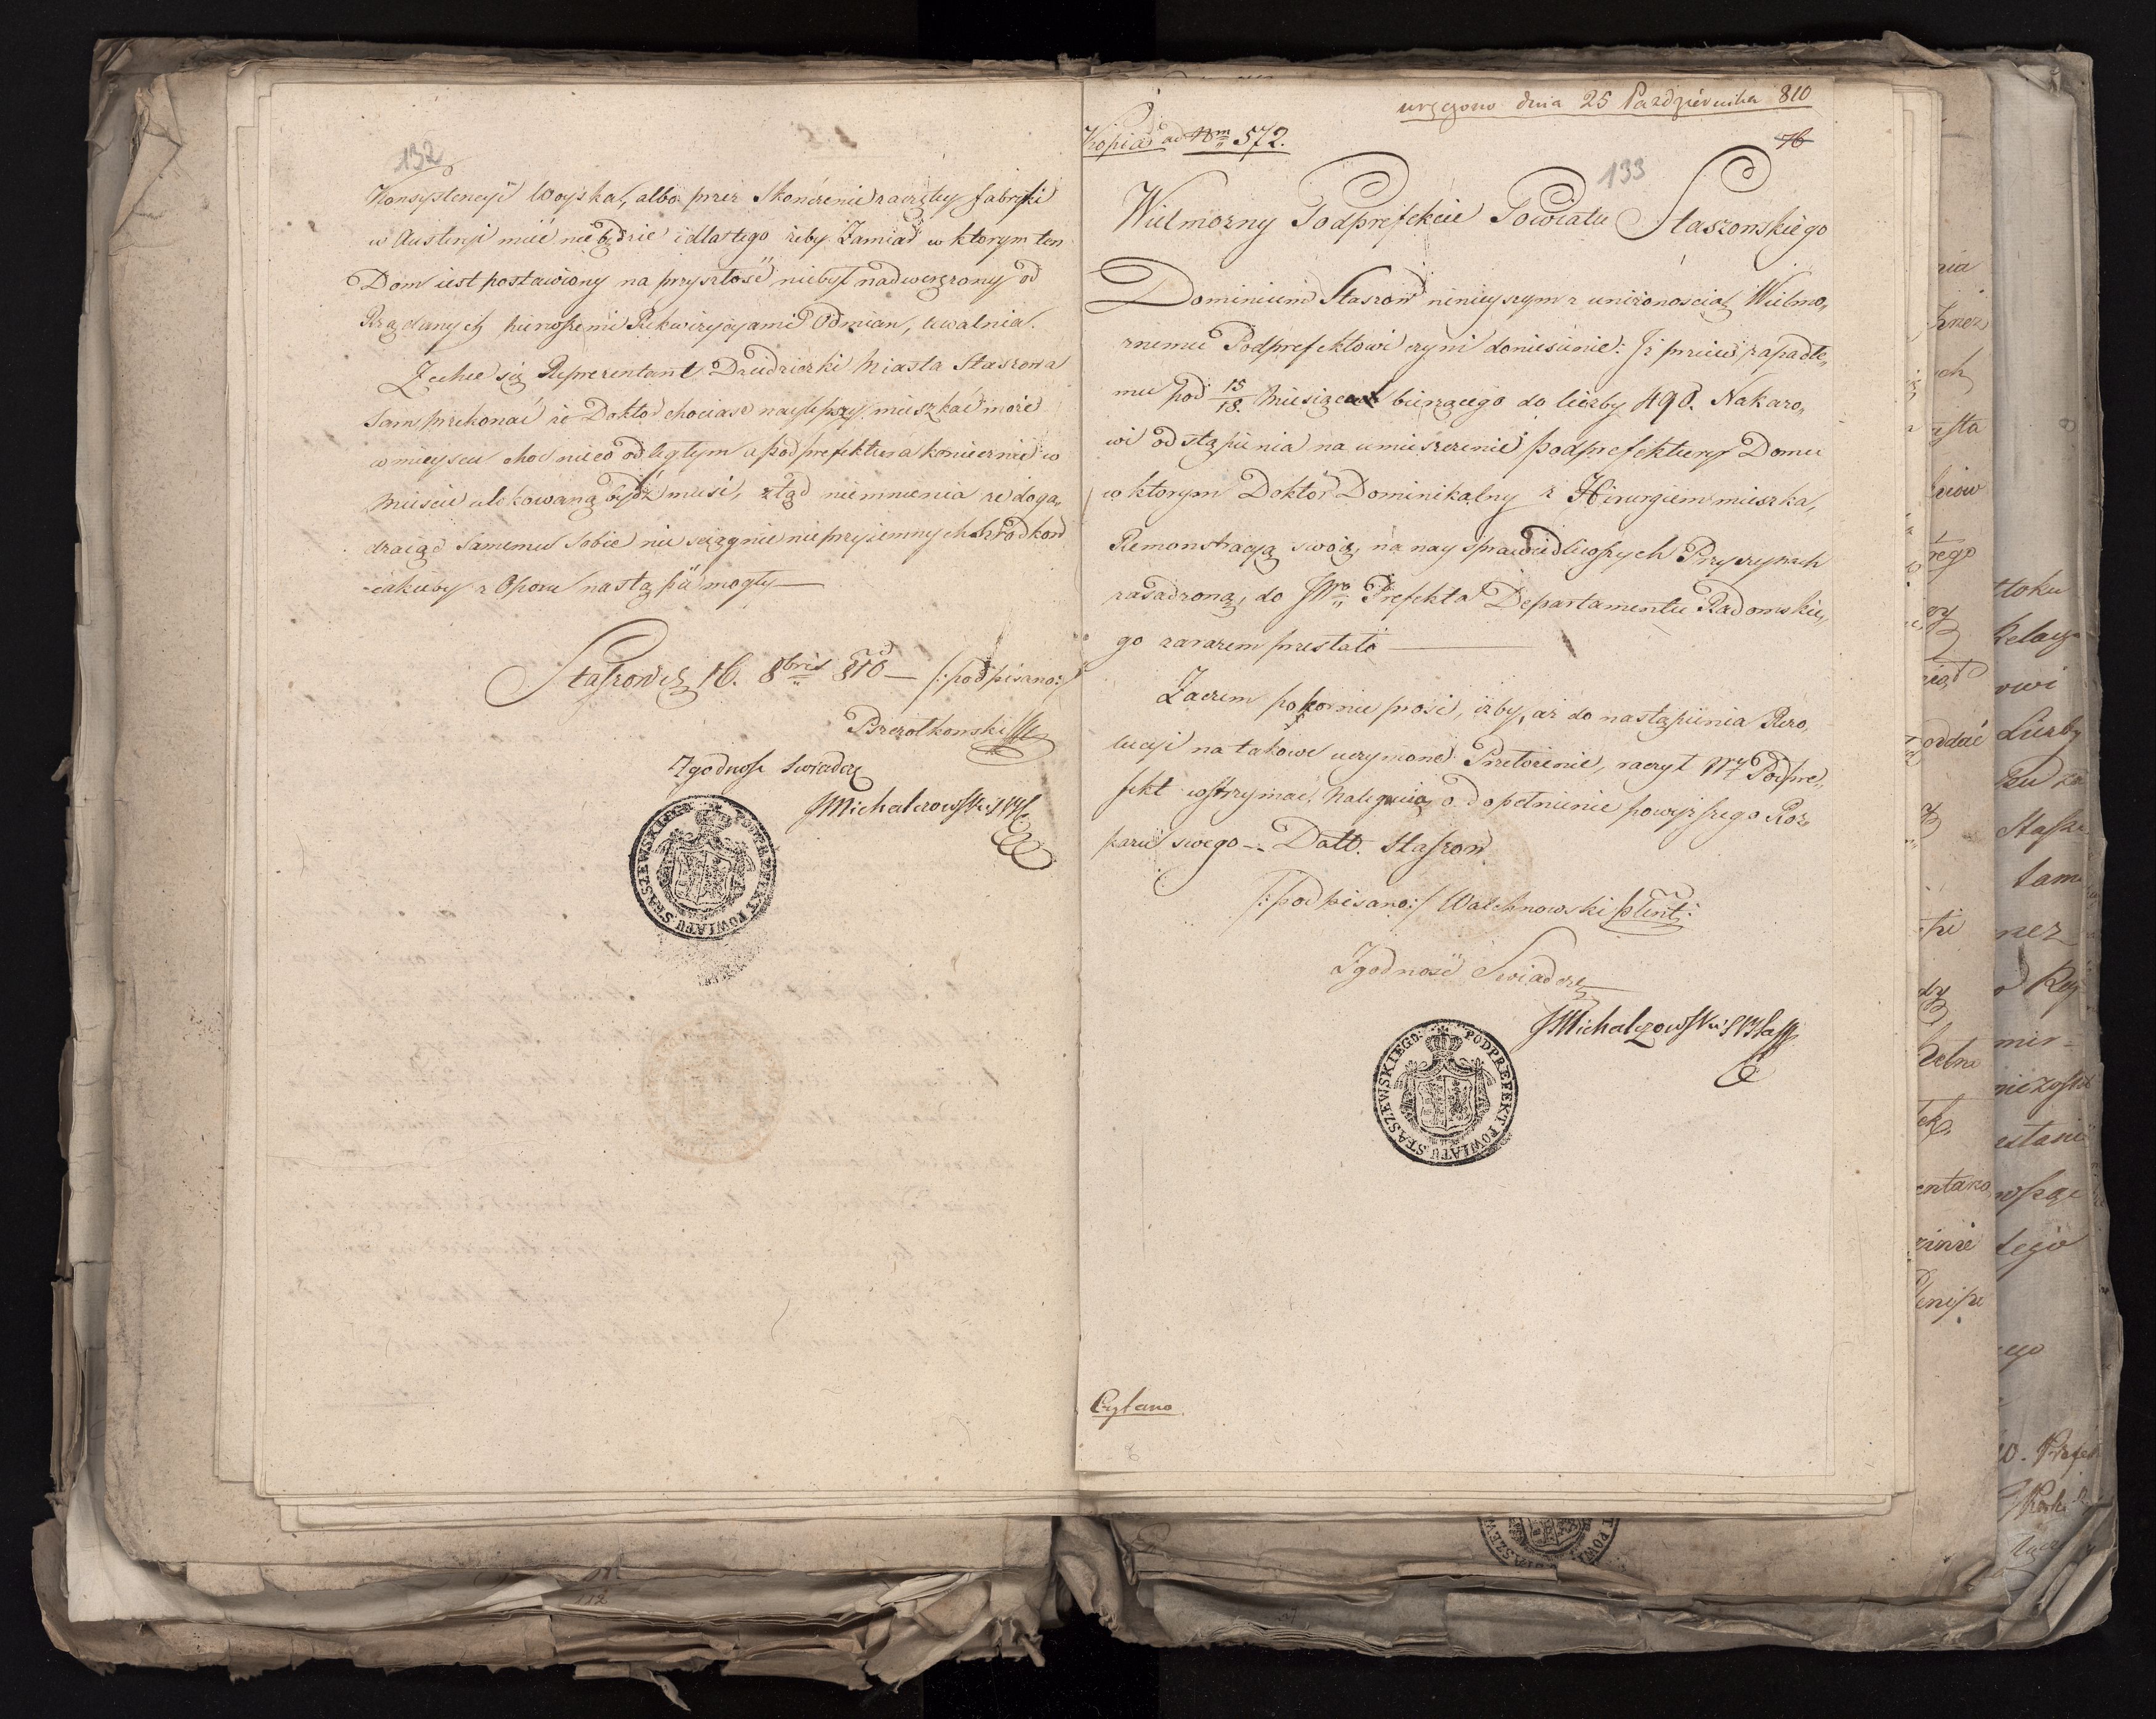 132
Konsystencyi Woyska, albo przez Skończenie zaczętey fabryki
w Austeryi mieć nie będzie i dla tego żeby Zamiar w ktorym ten
Dom iest postawiony na przyszłość niebył nadweręzony od
Rządowych Rekwizycyami Odmian, uwalnia.
Zechce się Reprezentant Dziedziczki Miasta Staszowa
sam przekonać że Doktor chociasz naylepszy mieszkać może
w mieyscu choć nieco odległym a podprefektura koniecznie w
Mieście ulokowaną bydź musi, ztąd niemniema że doga„
dzaiąc samemu sobie nie sciągnie nieprzyiemnych szrodkow
iakieby z Oporu nastąpić mogły —
Staszowie 16. 8bris 810 — /:podpisano:/
Pszczołkowski
Zgodnosc Swiadczę
JMichalczowski
PODPREFEKT POWIATU STASZEWSKIEGO
wręczono dnia 25 Października 810
Kopia ad Nm 572.
76
133
Wielmozny Podprefekcie Powiatu Staszowskiego
Dominium Staszow ninieyszym z uniżonoscią Wielmo„
znemu Podprefektowi czyni doniesienie: Iż przeciw zapadłe„
mu pod 15/18. Miesiąca bieżącego do liczby 490. Nakazo„
wi odstąpienia na umieszczenie podprefektury Domu
w ktorym Doktor Dominikalny z Hirurgiem mieszka,
Remonstracyą swoię, na naysprawiedliwszych Przyczynach
zasadzoną, do JWo Prefekta Departamentu Radomskie„
go zarazem przesłało —
Zaczem pokornie prosi, iżby, aż do nastąpienia Rezo„
lucyi na takowe uczynione Przełożenie, raczył Wy Podpre„
fekt wstrzymać Nalegania o dopełnienie powyższego Roz
kazu swego — Datt. Staszow
/:podpisano:/ Walchnowski plent:
Zgodność Swiadczę
JMichalczowski
PODPREFEKT POWIATU STASZEWSKIEGO
Czytano